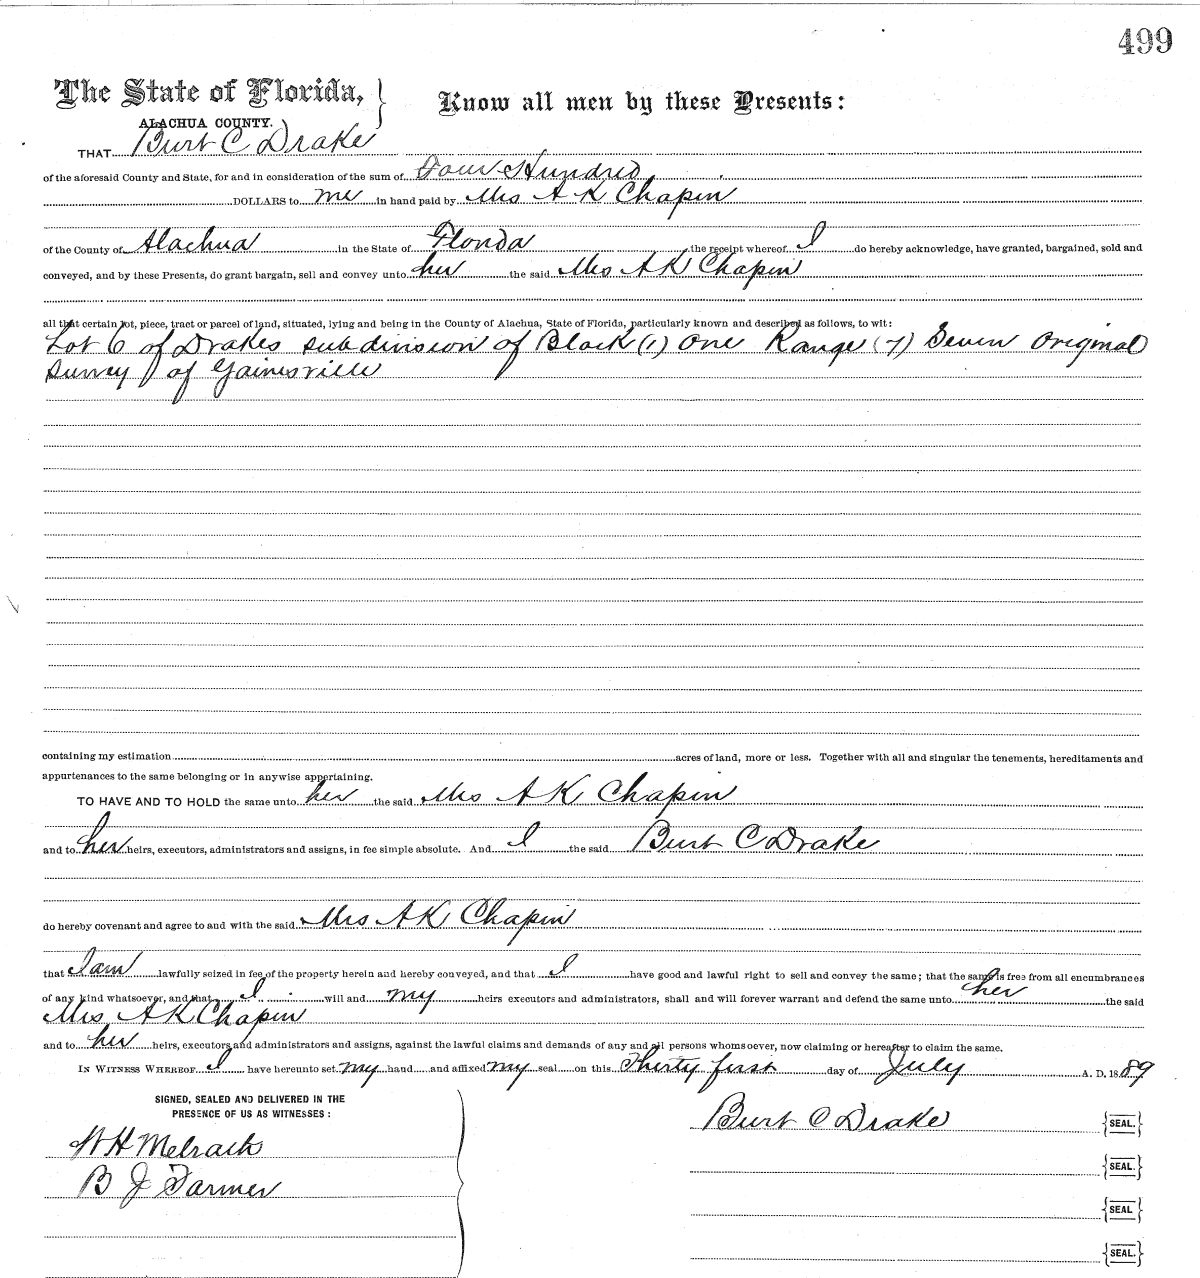 499
The State of Florida, } Know all men by these Presents:
ALACHUA COUNTY.
THAT Burt C Drake
of the aforesaid County and State, for and in consideration of the sum of Four Hundred
DOLLARS to me in hand paid by Mrs A K Chapin
of the County of Alachua in the State of Florida the receipt whereof I do hereby acknowledge, have granted, bargained, sold and
conveyed, and by these Presents, do grant bargain, sell and convey unto her the said Mrs A K Chapin
all that certain lot, piece, tract or parcel of land, situated, lying and being in the County of Alachua, State of Florida, particularly known and described as follows, to wit:
Lot 6 of Drakes subdivision of Block (1) One Range (7) Seven Original
Survey of Gainesville
containing my estimation acres of land, more or less. Together with all and singular the tenements, hereditaments and
appurtenances to the same belonging or in anywise appertaining.
TO HAVE AND TO HOLD the same unto her the said Mrs A K Chapin
and to her heirs, executors, administrators and assigns, in fee simple absolute. And I the said Burt C Drake
do hereby covenant and agree to and with the said Mrs A K Chapin
that I am lawfully seized in fee of the property herein and hereby conveyed, and that I have good and lawful right to sell and convey the same; that the same is free from all encumbrances
of any kind whatsoever, and that I will and my heirs executors and administrators, shall and will forever warrant and defend the same unto her the said
Mrs A K Chapin
and to her heirs, executors and administrators and assigns, against the lawful claims and demands of any and all persons whomsoever, now claiming or hereafter to claim the same.
IN WITNESS WHEREOF I have hereunto set my hand and affixed my seal on this Thirty first day of July A. D. 1889
SIGNED, SEALED AND DELIVERED IN THE
PRESENCE OF US AS WITNESSES:
Burt C Drake {SEAL.}
W H
{SEAL.}
B J Farmer
{SEAL}
{SEAL.}